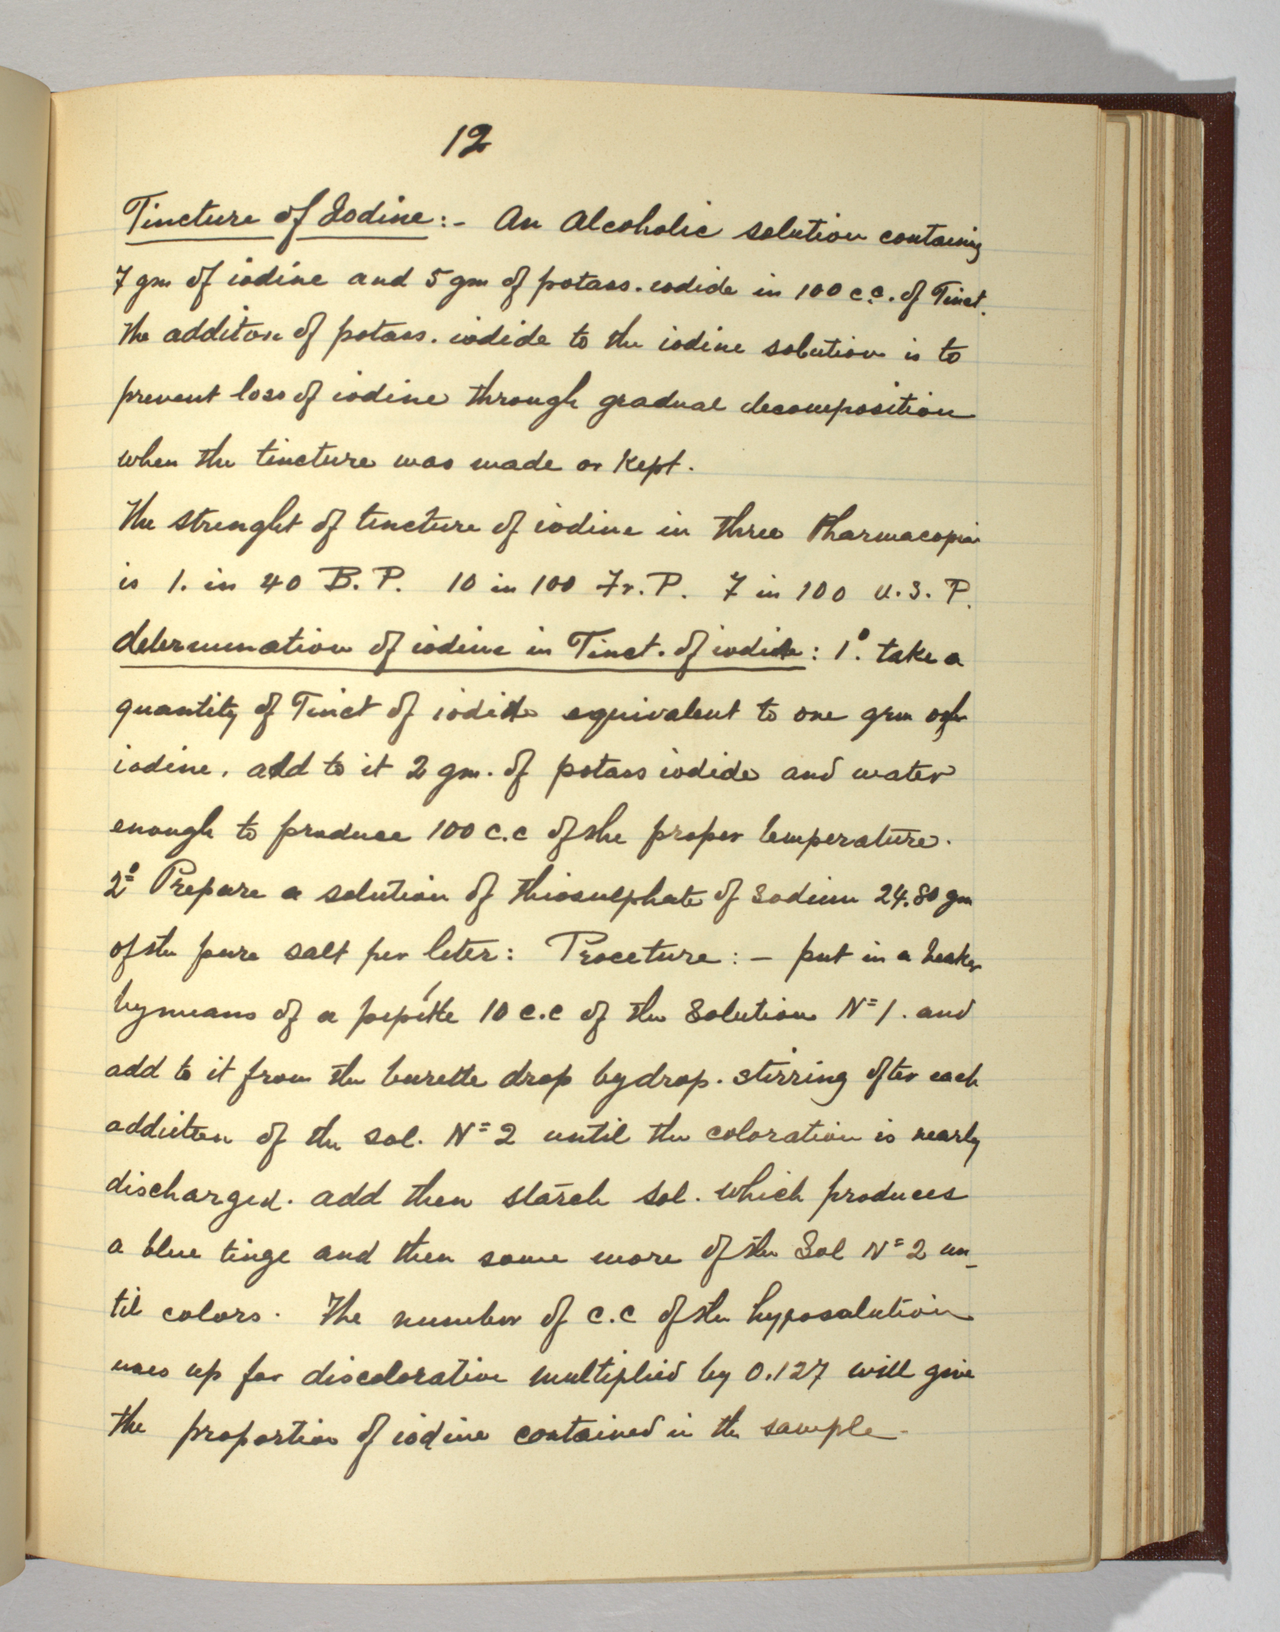 12
Tincture of Iodine:- An Alcoholic solution containing
7 gm of iodine and 5 gm of potass. iodide in 100 c.c. of Tinct.
The addition of potass. iodide to the iodine solution is to
prevent loss of iodine through gradual decomposition
when the tincture was made or Kept.
The strenght of tincture of iodine in three Pharmacopia
is 1. in 40 B. P. 10 in 100 Fr. P. 7 in 100 U. S. P.
determination of iodine in Tinct. of iodide: 1º. take a
quantity of Tinct of iodide equivalent to one grm of
iodine. add to it 2 gm. of potass iodide and water
enough to produce 100 c.c of the proper temperature.
2º Prepare a solution of thiosulphate of Sodium 24.80 gm
of the pure salt per liter: Proceture:- put in a beaker
by means of a pepitte 10 c.c of the Solution Nº 1. and
add to it from the burette drop by drop. stirring after each
addiction of the sol. Nº 2 until the coloration is nearly
discharged. add then starch sol. which produces
a blue tinge and then some more of the Sol Nº 2 un-
til colors. The number of c.c of the hyposolution
uses up for discolorative multiplied by 0.127 will give
the proportion of iodine contained in the sample.